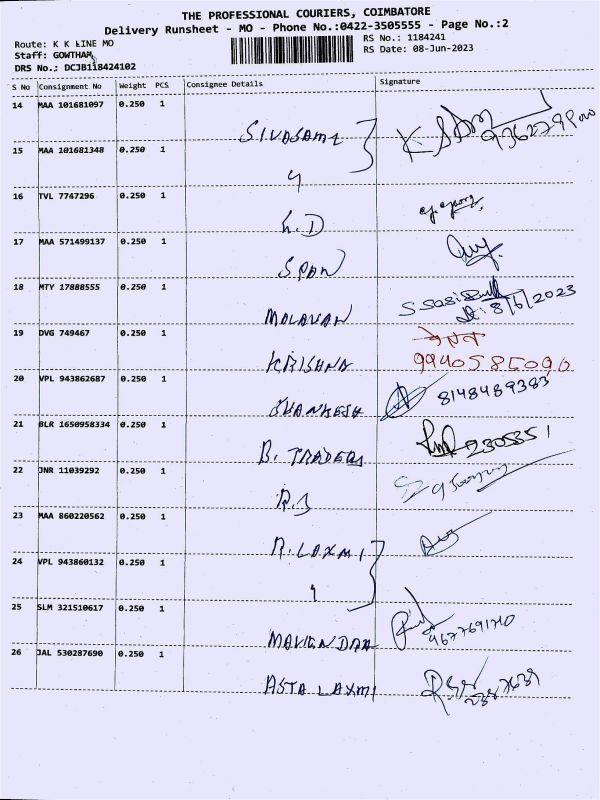 THE PROFESSIONAL COURIERS, COIMBATORE
Delivery Runsheet - MO - Phone No.:0422-3505555 - Page No.:2
Route: K K LINE MO
RS No.: 1184241
Staff: GOWTHAM
RS Date: 08-Jun-2023
DRS No.: DCJB118424102
S No Consignment No Weight PCS Consignee Details Signature
14 MAA 101681097 0.250 1
SIVASAMI
15 MAA 101681348 0.250 1
16 TVL 7747296 0.250 1
L.D
17 MAA 571499137 0.250 1
SPAN
18 MTY 17888555 0.250 1
MALAVAN S SasiBull Dt: 8/6/2023
19 DVG 749467 0.250 1
KRISHNA 9940585090
20 VPL 943862687 0.250 1
8148489383
21 BLR 1650958334 0.250 1
B. TRADERS 2305351
22 JNR 11039292 0.250 1
R.J
23 MAA 860220562 0.250 1
R. LAXMI
24 VPL 943860132 0.250 1
25 SLM 321510617 0.250 1
9677691710
26 JAL 530287690 0.250 1
ASTA LAXMI